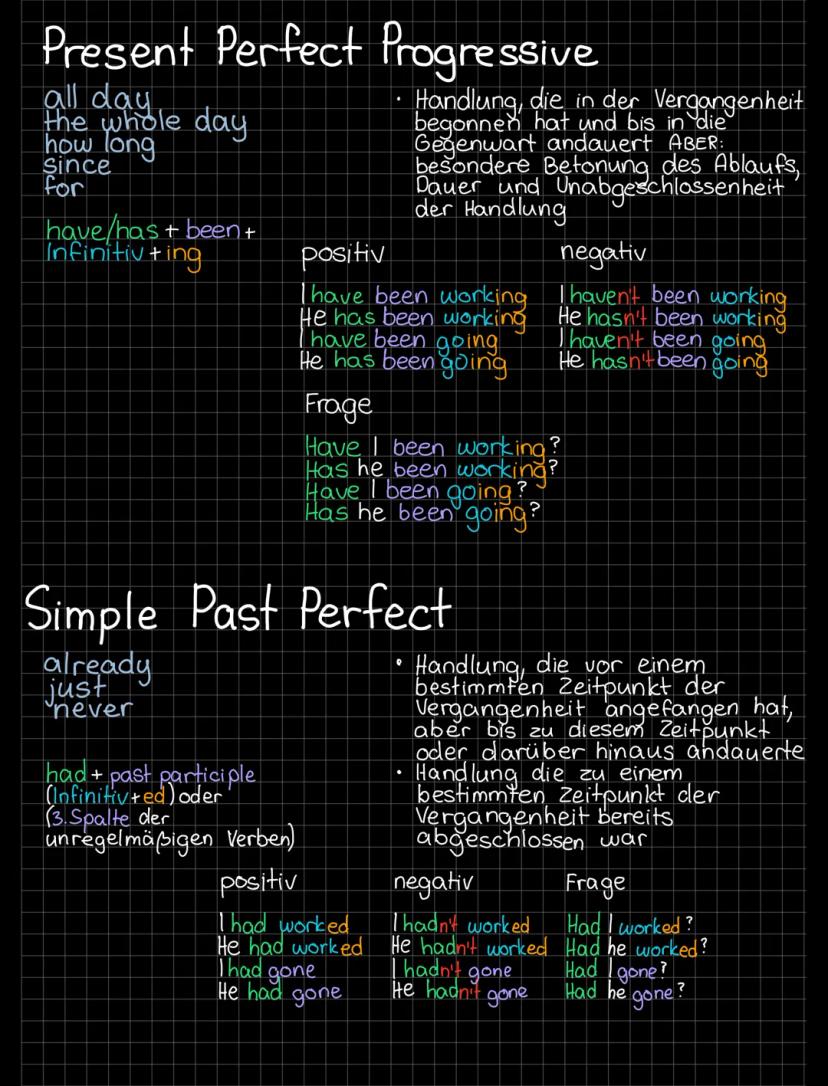 Present Perfect Progressive
all day
the whole day
how long
since
for
have/has + been +
Infinitiv + ing
• Handlung, die in der Vergangenheit
begonnen hat und bis in die
Gegenwart andauert ABER:
besondere Betonung des Ablaufs,
Dauer und Unabgeschlossenheit
der Handlung
positiv
I have been working
He has been working
I have been going
He has been going
negativ
I haven't been working
He hasn't been working
I haven't been going
He hasn't been going
Frage
Have I been working?
Has he been working?
Have I been going?
Has he been going?
Simple Past Perfect
already
just
never
had + past participle
(Infinitiv + ed) oder
(3. Spalte der
unregelmäßigen Verben)
• Handlung, die vor einem
bestimmten Zeitpunkt der
Vergangenheit angefangen hat,
aber bis zu diesem Zeitpunkt
oder darüber hinaus andauerte
• Handlung die zu einem
bestimmten Zeitpunkt der
Vergangenheit bereits
abgeschlossen war
positiv
I had worked
He had worked
I had gone
He had gone
negativ
I hadn't worked
He hadn't worked
I hadn't gone
He hadn't gone
Frage
Had I worked?
Had he worked?
Had I gone?
Had he gone?